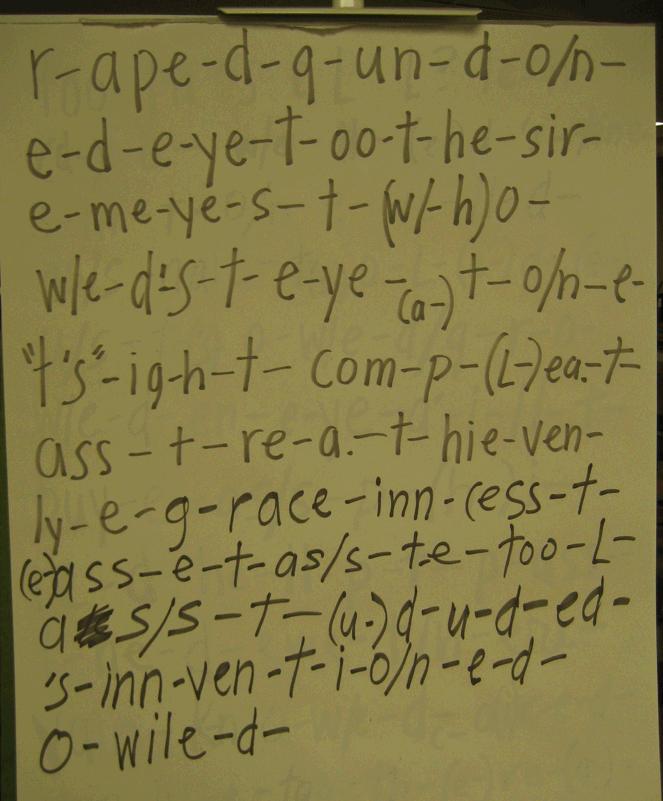 r-ape-d-q-un-d-o/n-
e-d-e-ye-t-oo-t-he-sir-
e-me-ye-s-t-(w/-h)o-
w/e-d's-t-e-ye-(a-)t-o/n-e-
"t's"-ig-h-t-com-p-(L-)ea.-t-
ass-t-re-a.-t-hie-ven-
ly-e-g-race-inn-cess-t-
(e-)ass-e-t-as/s-t-e-too-L-
a s/s-t-(u-)d-u-d-ed-
's-inn-ven-t-i-o/n-e-d-
o-wile-d-